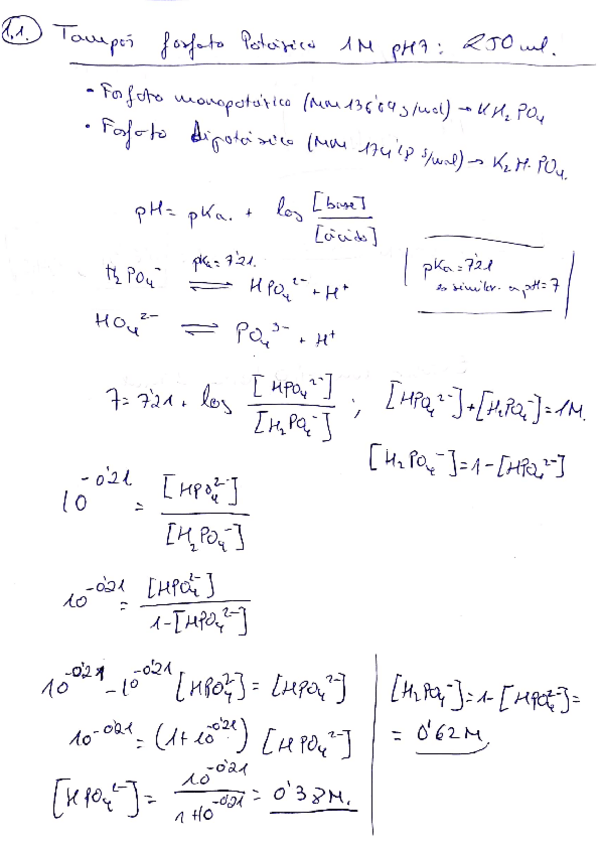 1.1. Tampón fosfato Potásico 1M pH7: 250 ml.
• Fosfato monopotásico (MM 136'09 g/mol) → KH₂PO₄
• Fosfato dipotásico (MM 174'18 g/mol) → K₂H·PO₄.
pH = pKa. + log [base]/[ácido]
pKa = 7'21
es similar a pH = 7
H₂PO₄⁻ ⇌ HPO₄²⁻ + H⁺ pKa = 7'21.
HO₄²⁻ ⇌ PO₄³⁻ + H⁺
7 = 7'21 + log [HPO₄²⁻]/[H₂PO₄⁻] ; [HPO₄²⁻] + [H₂PO₄⁻] = 1M.
[H₂PO₄⁻] = 1 - [HPO₄²⁻]
10^-0'21 = [HPO₄²⁻]/[H₂PO₄⁻]
10^-0'21 = [HPO₄²⁻]/1-[HPO₄²⁻]
10^-0'21 - 10^-0'21 [HPO₄²⁻] = [HPO₄²⁻]
10^-0'21 = (1+10^-0'21) [HPO₄²⁻]
[HPO₄²⁻] = 10^-0'21/1+10^-0'21 = 0'38 M.
[H₂PO₄⁻] = 1 - [HPO₄²⁻] =
= 0'62 M